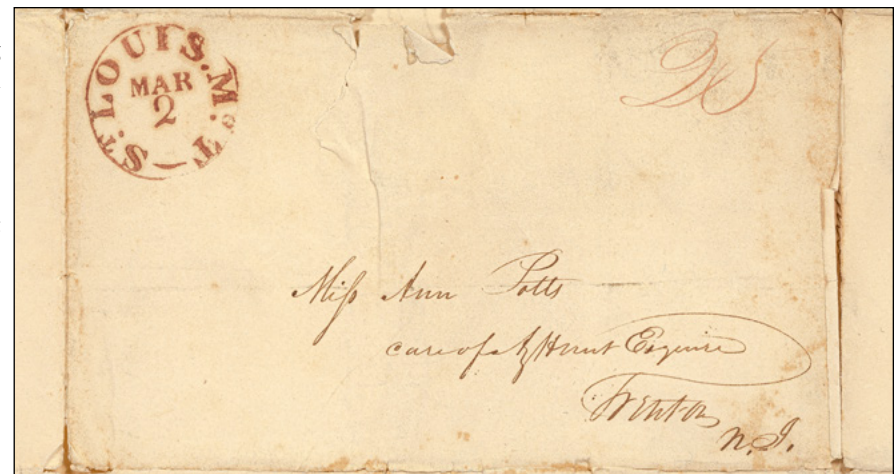 ST. LOUIS. Mo. T
MAR
2
25
Miss Ann Potts
care of Hunt Esquire
Trenton
N.J.